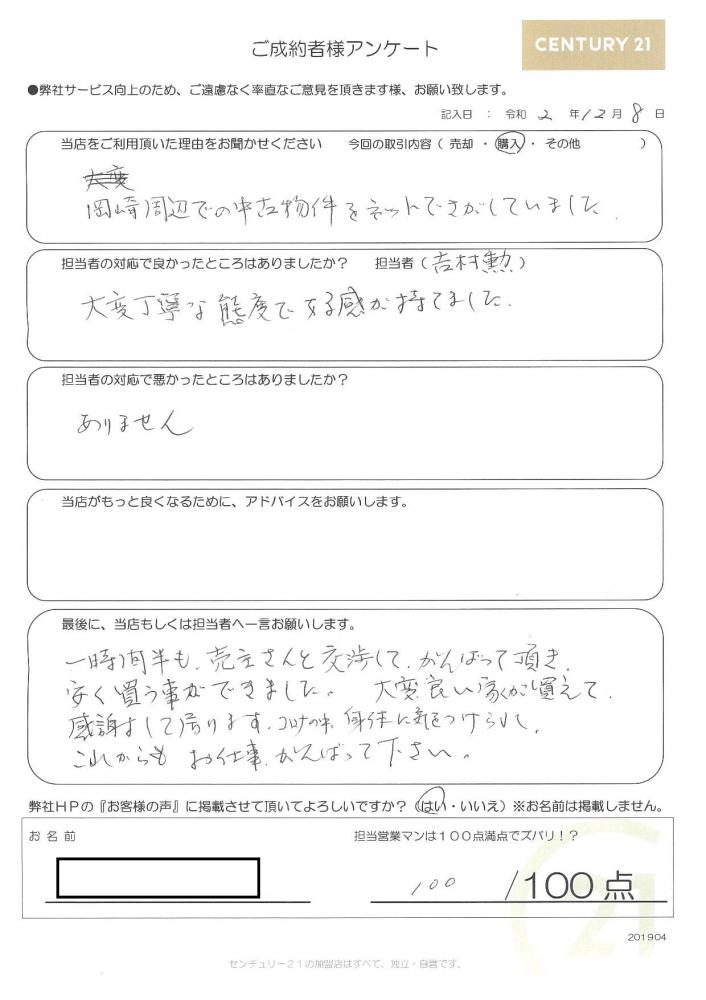 ご成約者様アンケート
CENTURY 21
●弊社サービス向上のため、ご遠慮なく率直なご意見を頂きます様、お願い致します。
記入日 : 令和 2 年 12 月 8 日
当店をご利用頂いた理由をお聞かせください 今回の取引内容 ( 売却 ・ 購入 ・ その他 )
大変
岡崎周辺での中古物件をネットでさがしていました.
担当者の対応で良かったところはありましたか? 担当者 ( 吉村勲 )
大変丁寧な態度で好感が持てました.
担当者の対応で悪かったところはありましたか?
ありません
当店がもっと良くなるために、アドバイスをお願いします。
最後に、当店もしくは担当者へ一言お願いします。
一時間半も、売主さんと交渉して、がんばって頂き、
安く買う事ができました。 大変良い家が買えて、
感謝して居ります、コロナの中、身体に気をつけられて、
これからも お仕事、がんばって下さい。
弊社HPの『お客様の声』に掲載させて頂いてよろしいですか? (はい・いいえ) ※お名前は掲載しません。
お 名 前
担当営業マンは100点満点でズバリ!?
100 /100 点
21
201904
センチュリー21の加盟店はすべて、独立・自営です。